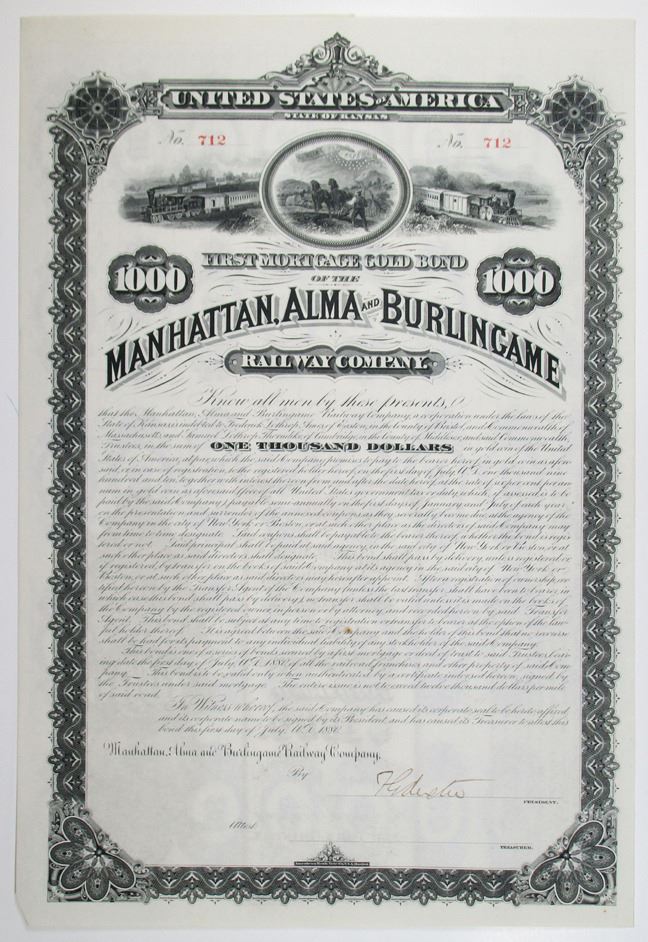 UNITED STATES OF AMERICA
STATE OF KANSAS
No. 712 No. 712
FIRST MORTGAGE GOLD BOND
1000 OF THE 1000
MANHATTAN, ALMA AND BURLINGAME
RAILWAY COMPANY
Know all men by these presents,
that the Manhattan, Alma and Burlingame Railway Company, a corporation under the laws of the
State of Kansas is indebted to Frederick Lothrop Ames of Easton, in the county of Bristol, and Commonwealth of
Massachusetts, and Samuel Lothrop Thorndike of Cambridge, in the County of Middlesex, and said Commonwealth,
Trustees, in the sum of ONE THOUSAND DOLLARS in gold coin of the United
States of America, at par, which
said, or in case of registration, to the registered holder hereof, on the first day of July, A.D. one thousand nine
hundred and ten, together with interest thereon from and after the date hereof, at the rate of six per cent per an-
num in gold coin as aforesaid free of all United States government tax or duty, which, if assessed is to be
paid by the said Company, payable semi-annually on the first days of January and July of each year
on the presentation and surrender of the annexed coupons as they severally become due, at the agency of the
Company in the city of New York or Boston, or at such other place as the directors of said Company may
from time to time designate. Said coupons shall be payable to the bearer thereof, whether the bond is regis-
tered or not. Said principal shall be paid at said agency, in the said city of New York or Boston, or at
such other place as said directors shall designate. This bond shall pass by delivery, unless registered, or
if registered, by transfer on the books of said Company at its agency in the said city of New York, or
Boston, or at such other place as said directors may hereafter appoint. After a registration of ownership, cer-
tified hereon by the Transfer Agent of the Company (unless the last transfer shall have been to bearer, in
which case the bond shall pass by delivery), no transfer shall be valid unless made on the books of
the Company by the registered owner, in person or by attorney, and noted hereon by said Transfer
Agent. This bond shall be subject at any time to registration or transfer to bearer at the option of the law-
ful holder thereof. It is agreed between the said Company and the holder of this bond that no recourse
shall be had for its payment to any individual liability of any stockholder of the said Company.
This bond is one of a series of bonds secured by a first mortgage or deed of trust to said Trustees, bear-
ing date the first day of July, A.D. 1880, of all the railroad, franchises and other property of said Com-
pany. This bond is to be valid only when authenticated by a certificate indorsed hereon, signed by
the Trustees under said mortgage. The entire issue is not to exceed twelve thousand dollars per mile
of said road.
In Witness Whereof, the said Company has caused its corporate seal to be hereto affixed
and its corporate name to be signed by its President and has caused its Treasurer to attest this
bond this first day of July, A.D. 1880.
Manhattan, Alma and Burlingame Railway Company,
By
PRESIDENT.
Attest
TREASURER.